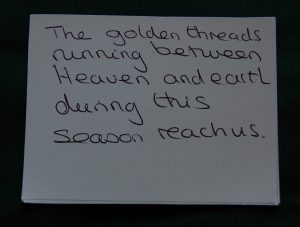 The golden threads
running between
Heaven and earth
during this
season reach us.